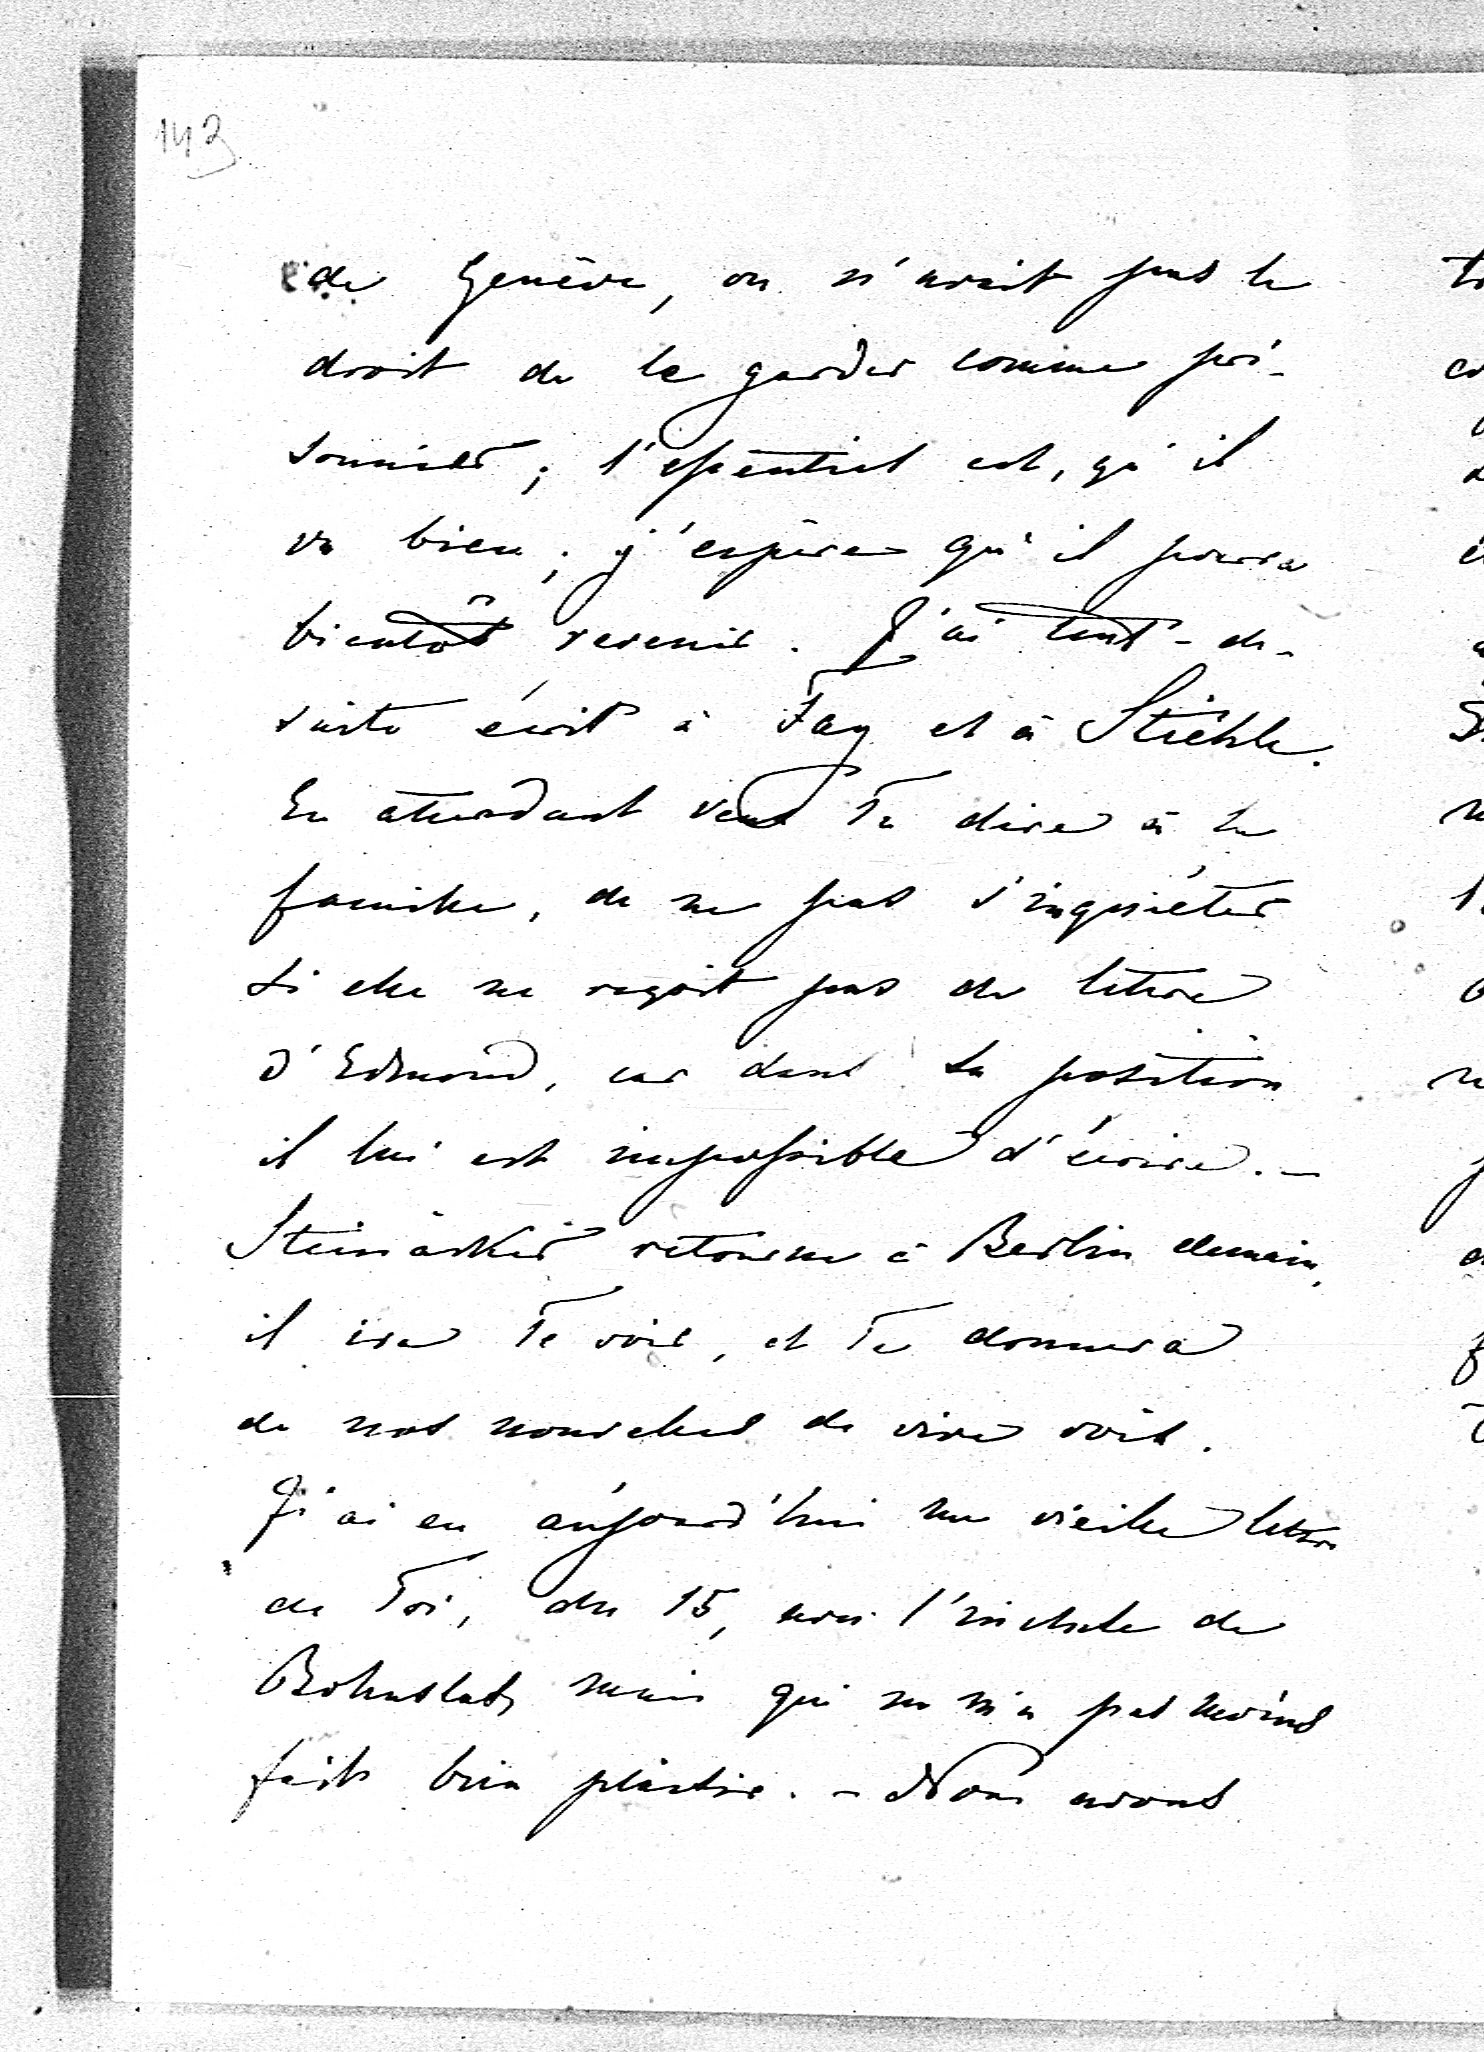 143
de Genève, on n'avait pas le
droit de le garder comme pri-
sonnier; l'essentiel est, qu'il
va bien; j'espère qu'il pourra
bientôt revenir. J'ai tout-de-
suite écrit à Fay et à Stiehle.
En attendant veux Tu dire à la
famille, de ne pas s'inquiéter
si elle ne reçoit pas de lettre
d'Edmond, car dans sa position
il lui est impossible d'écrire. –
retourne à Berlin demain,
il ira Te voir, et Te donnera
de nos nouvelles de vive voix.
J'ai eu aujourd'hui une vieille lettre
de Toi, du 15, avec l'incluse de
mais qui ne m'a pas moins
fait bien plaisir. – Nous avons